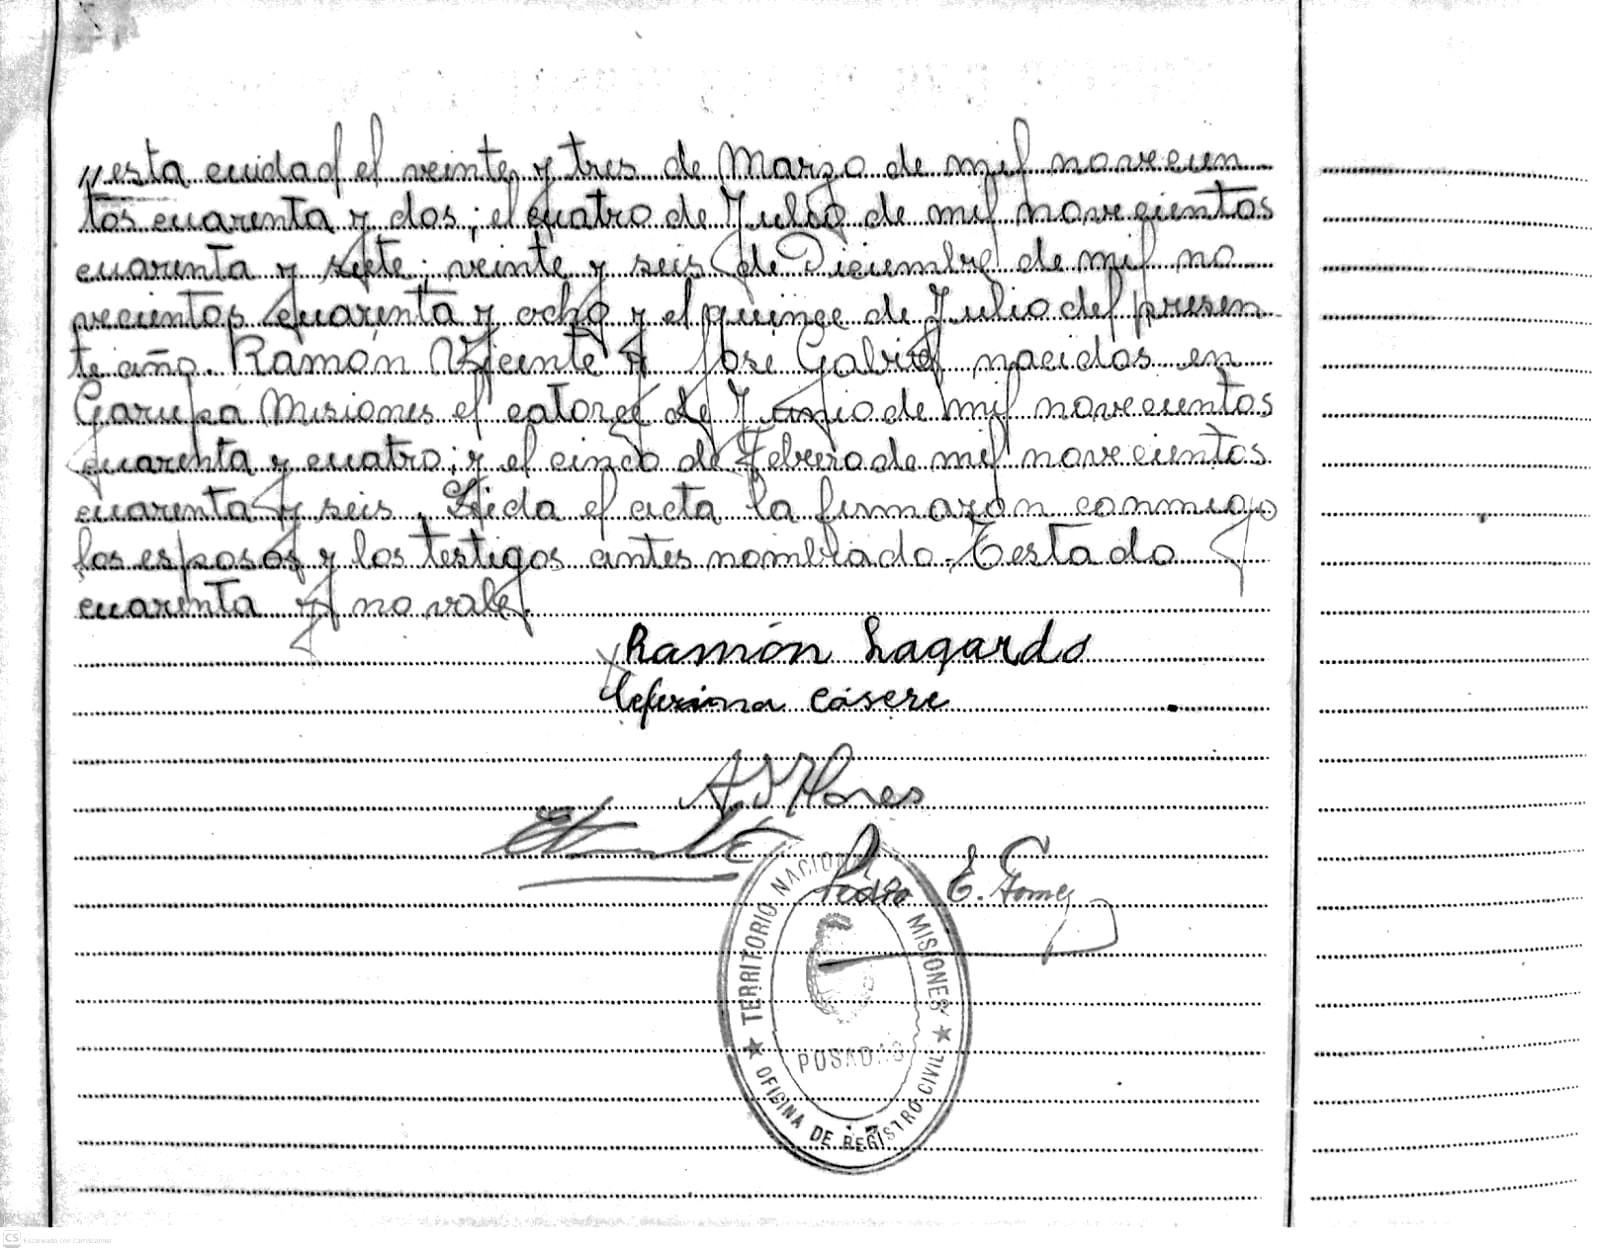 "esta ciudad el veinte y tres de Marzo de mil novecien
tos cuarenta y dos; el cuatro de Julio de mil novecientos
cuarenta y siete; veinte y seis de Diciembre de mil no
vecientos cuarenta y ocho y el quinze de Julio del presen
te año. Ramón Vicente y Jose Gabriel nacidos en
Garupa Misiones el catorce de Junio de mil novecientos
cuarenta y cuatro; y el cinco de Febrero de mil novecientos
cuarenta y seis. Leida el acta la firmaron conmigo
los esposos y los testigos antes nombrado. Testado
cuarenta y no vale.
Ramón Lagardo
Ceferina Cásere
A. Flores
Pedro E. Gomez
TERRITORIO NACIONAL MISIONES
POSADAS
OFICINA DE REGISTRO CIVIL
CS Escaneado con CamScanner